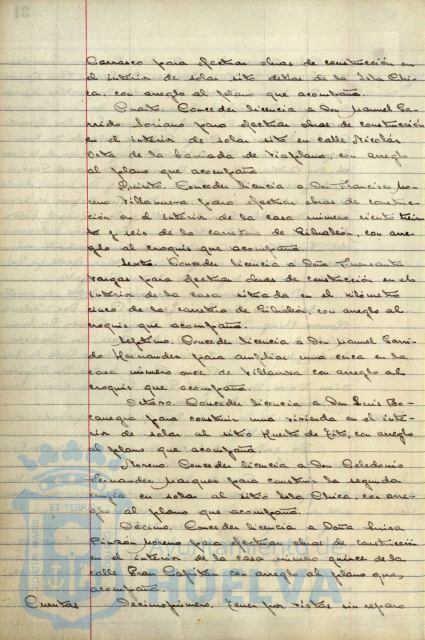 Carrasco para efectuar obras de construcción en
el interior de solar sito detras de la Isla Chi-
ca, con arreglo al plano que acompaña.
Cuarto. Conceder licencia a Don Manuel Ga-
rrido Soriano para efectuar obras de construcción
en el interior de solar sito en calle Nicolás
Orta de la barriada de Viaplana, con arreglo
al plano que acompaña
Quinto. Conceder licencia a Don Francisco Mo-
reno Villanueva para efectuar obras de construc-
ción en el interior de la casa número ciento trein
ta y seis de la carretera de Gibraleón, con arre-
glo al croquis que acompaña.
Sexto. Conceder licencia a Doña Fuensanta
Vargas para efectuar obras de construcción en el
interior de la casa situada en el kilómetro
cinco de la carretera de Gibraleón, con arreglo al
croquis que acompaña.
Septimo. Conceder licencia a Don Manuel Garri-
do Hernandez para ampliar una cerca en la
casa número once de con arreglo al
croquis que acompaña.
Octavo. Conceder licencia a Don Luis Bo-
canegra para construir una vivienda en el inte-
rior de solar al sitio Huerto de con arreglo
al plano que acompaña.
Noveno. Conceder licencia a Don Celedonio
Fernandez Marquez para construir la segunda
en solar al sitio Isla Chica, con arre-
glo al plano que acompaña.
Décimo. Conceder licencia a Doña Luisa
Pinzón Moreno para efectuar obras de construcción
en el interior de la casa número quince de la
calle Gran Capitan con arreglo al plano que,
acompaña.
Cuentas Decimoprimero. Tener por vistas sin reparo
HUELVA